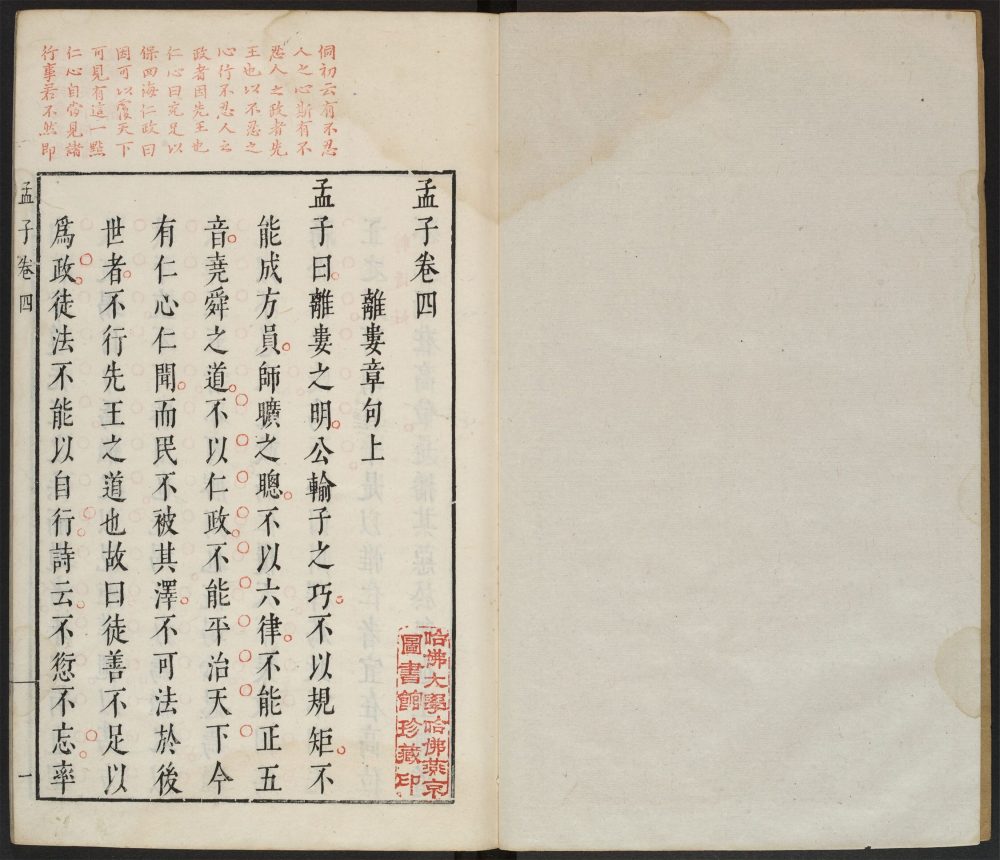 侗初云有不忍
人之心斯有不
忍人之政者先
王也以不忍之
心行不忍人之
政者因先王也
仁心曰究足以
保四海仁政曰
因可以覆天下
可見有這一點
仁心自當見諸
行事若不然即
孟子卷四
離婁章句上
孟子曰離婁之明公輸子之巧不以規矩不
能成方員師曠之聰不以六律不能正五
音堯舜之道不以仁政不能平治天下今
有仁心仁聞而民不被其澤不可法於後
世者不行先王之道也故曰徒善不足以
爲政徒法不能以自行詩云不愆不忘率
孟子卷四
一
哈佛大學哈佛燕京
圖書館珍藏印